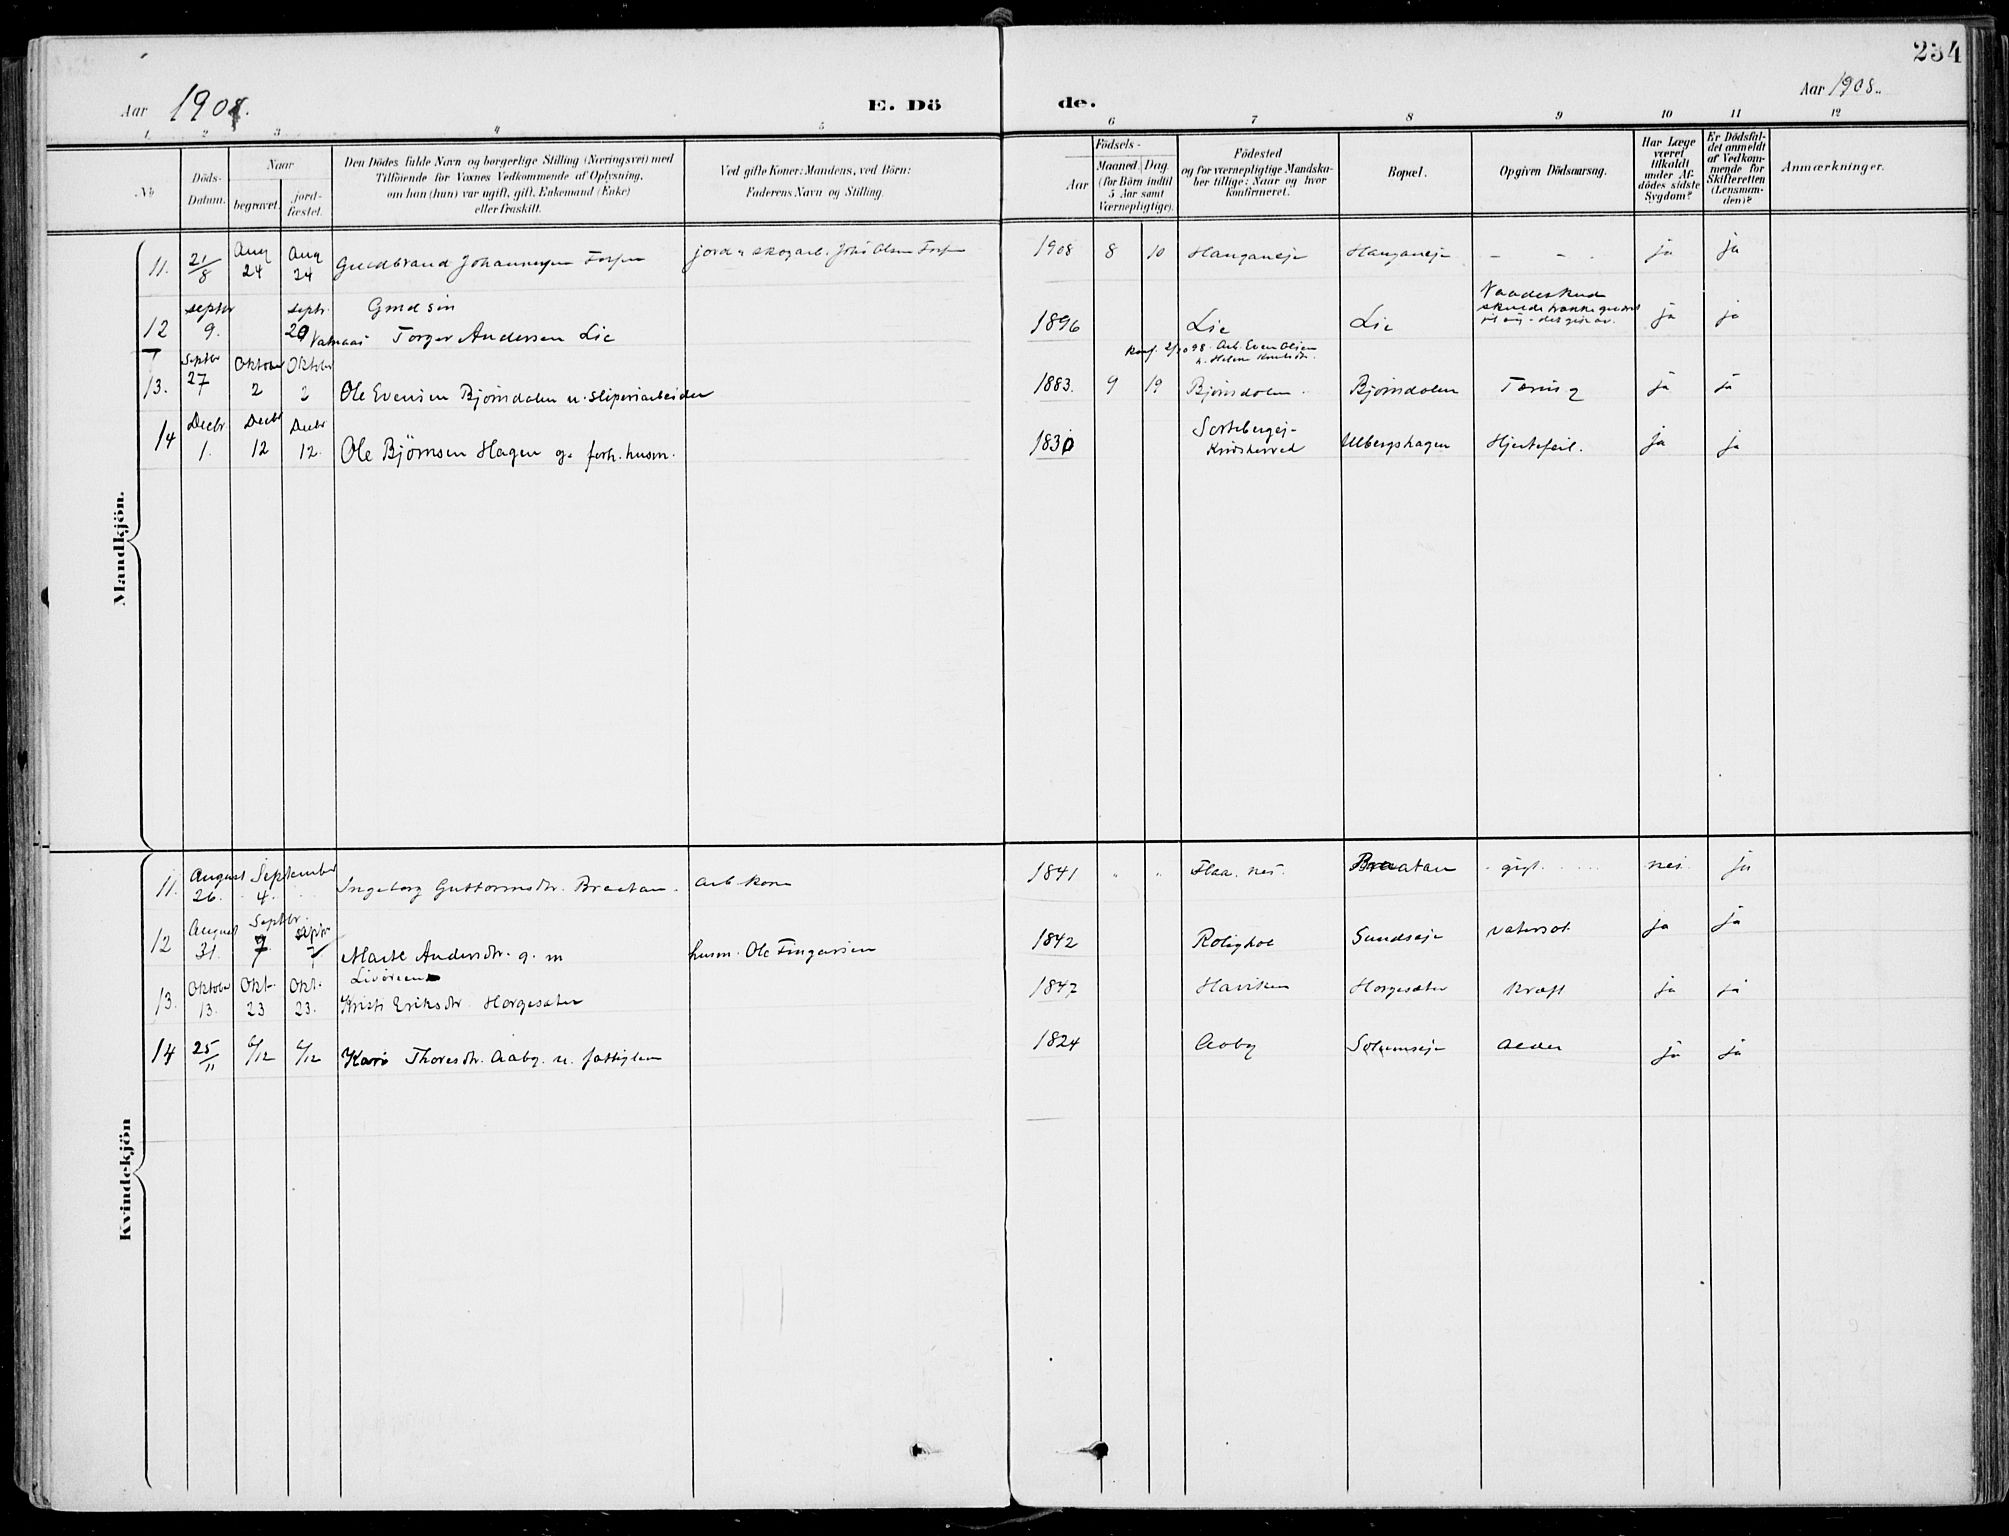 234
Aar 1908.
E. Dö
de.
Aar 1908.
1 2 3 4 5 6 7 8 9 10 11 12
No
Döds-
Datum.
Naar
begravet.
jord-
fæstet.
Den Dödes fulde Navn og borgerlige Stilling (Næringsvei) med
Tilföiende for Voxnes Vedkommende af Oplysning,
om han (hun) var ugift, gift, Enkemand (Enke)
eller fraskilt.
Ved gifte Koner: Mandens, ved Börn:
Faderens Navn og Stilling.
Födsels-
Aar
Maaned. Dag.
(for Börn indtil
5 Aar samt
Værnepligtige).
Födested
og for værnepligtige Mandska-
ber tillige: Naar og hvor
konfirmeret.
Bopæl.
Opgiven Dödsaarsag.
Har Læge
været
tilkaldt
under Af-
dödes sidste
Sygdom?
Er Dödsfal-
det anmeldt
af Vedkom-
mende for
Skifteretten
(Lensman-
den)?
Anmærkninger.
Mandkjön.
11. 21/8 Aug 24 Aug 24 Gudbrand Johannesen 1908 8 10 ja ja
12 septbr 9. septr. 20 Torger Andersen Lie 1896 Lie Lie Vaadeskud ja ja
13. Septbr 27 Oktober 2 Oktober 2 Ole Evensen Bjørnsdalen u. sliperiarbeider 1883. 9 19 Bjørnsdalen Bjørnsdalen Tæring ja ja
14 Decbr. 1. Decbr 12 Decbr 12. Ole Bjørnsen Hagen g. forh. husm. 1830 Ulbergshagen Hjertefeil. ja ja
Kvindekjön
11. August 26. September 4. Ingeborg Guttormsdtr. Braatan. arb. kone 1841 " " Flaa. nes. Braatan gigt. nei ja
12 August 31. Septbr. 7. septbr Marte Andersdtr. g. m husm. Ole Fingarsen 1842 Rolighet Sundseje vatersot ja ja
13. Oktober 13. Okt. 23 Okt. 23. Kristi Eriksdtr. Horgesæter 1847 Haviken Horgesæter Kræft ja ja
14 25/11 6/12 6/12 Kari Thoresdtr. Aaby. u. fattiglem 1824 Aaby ja ja